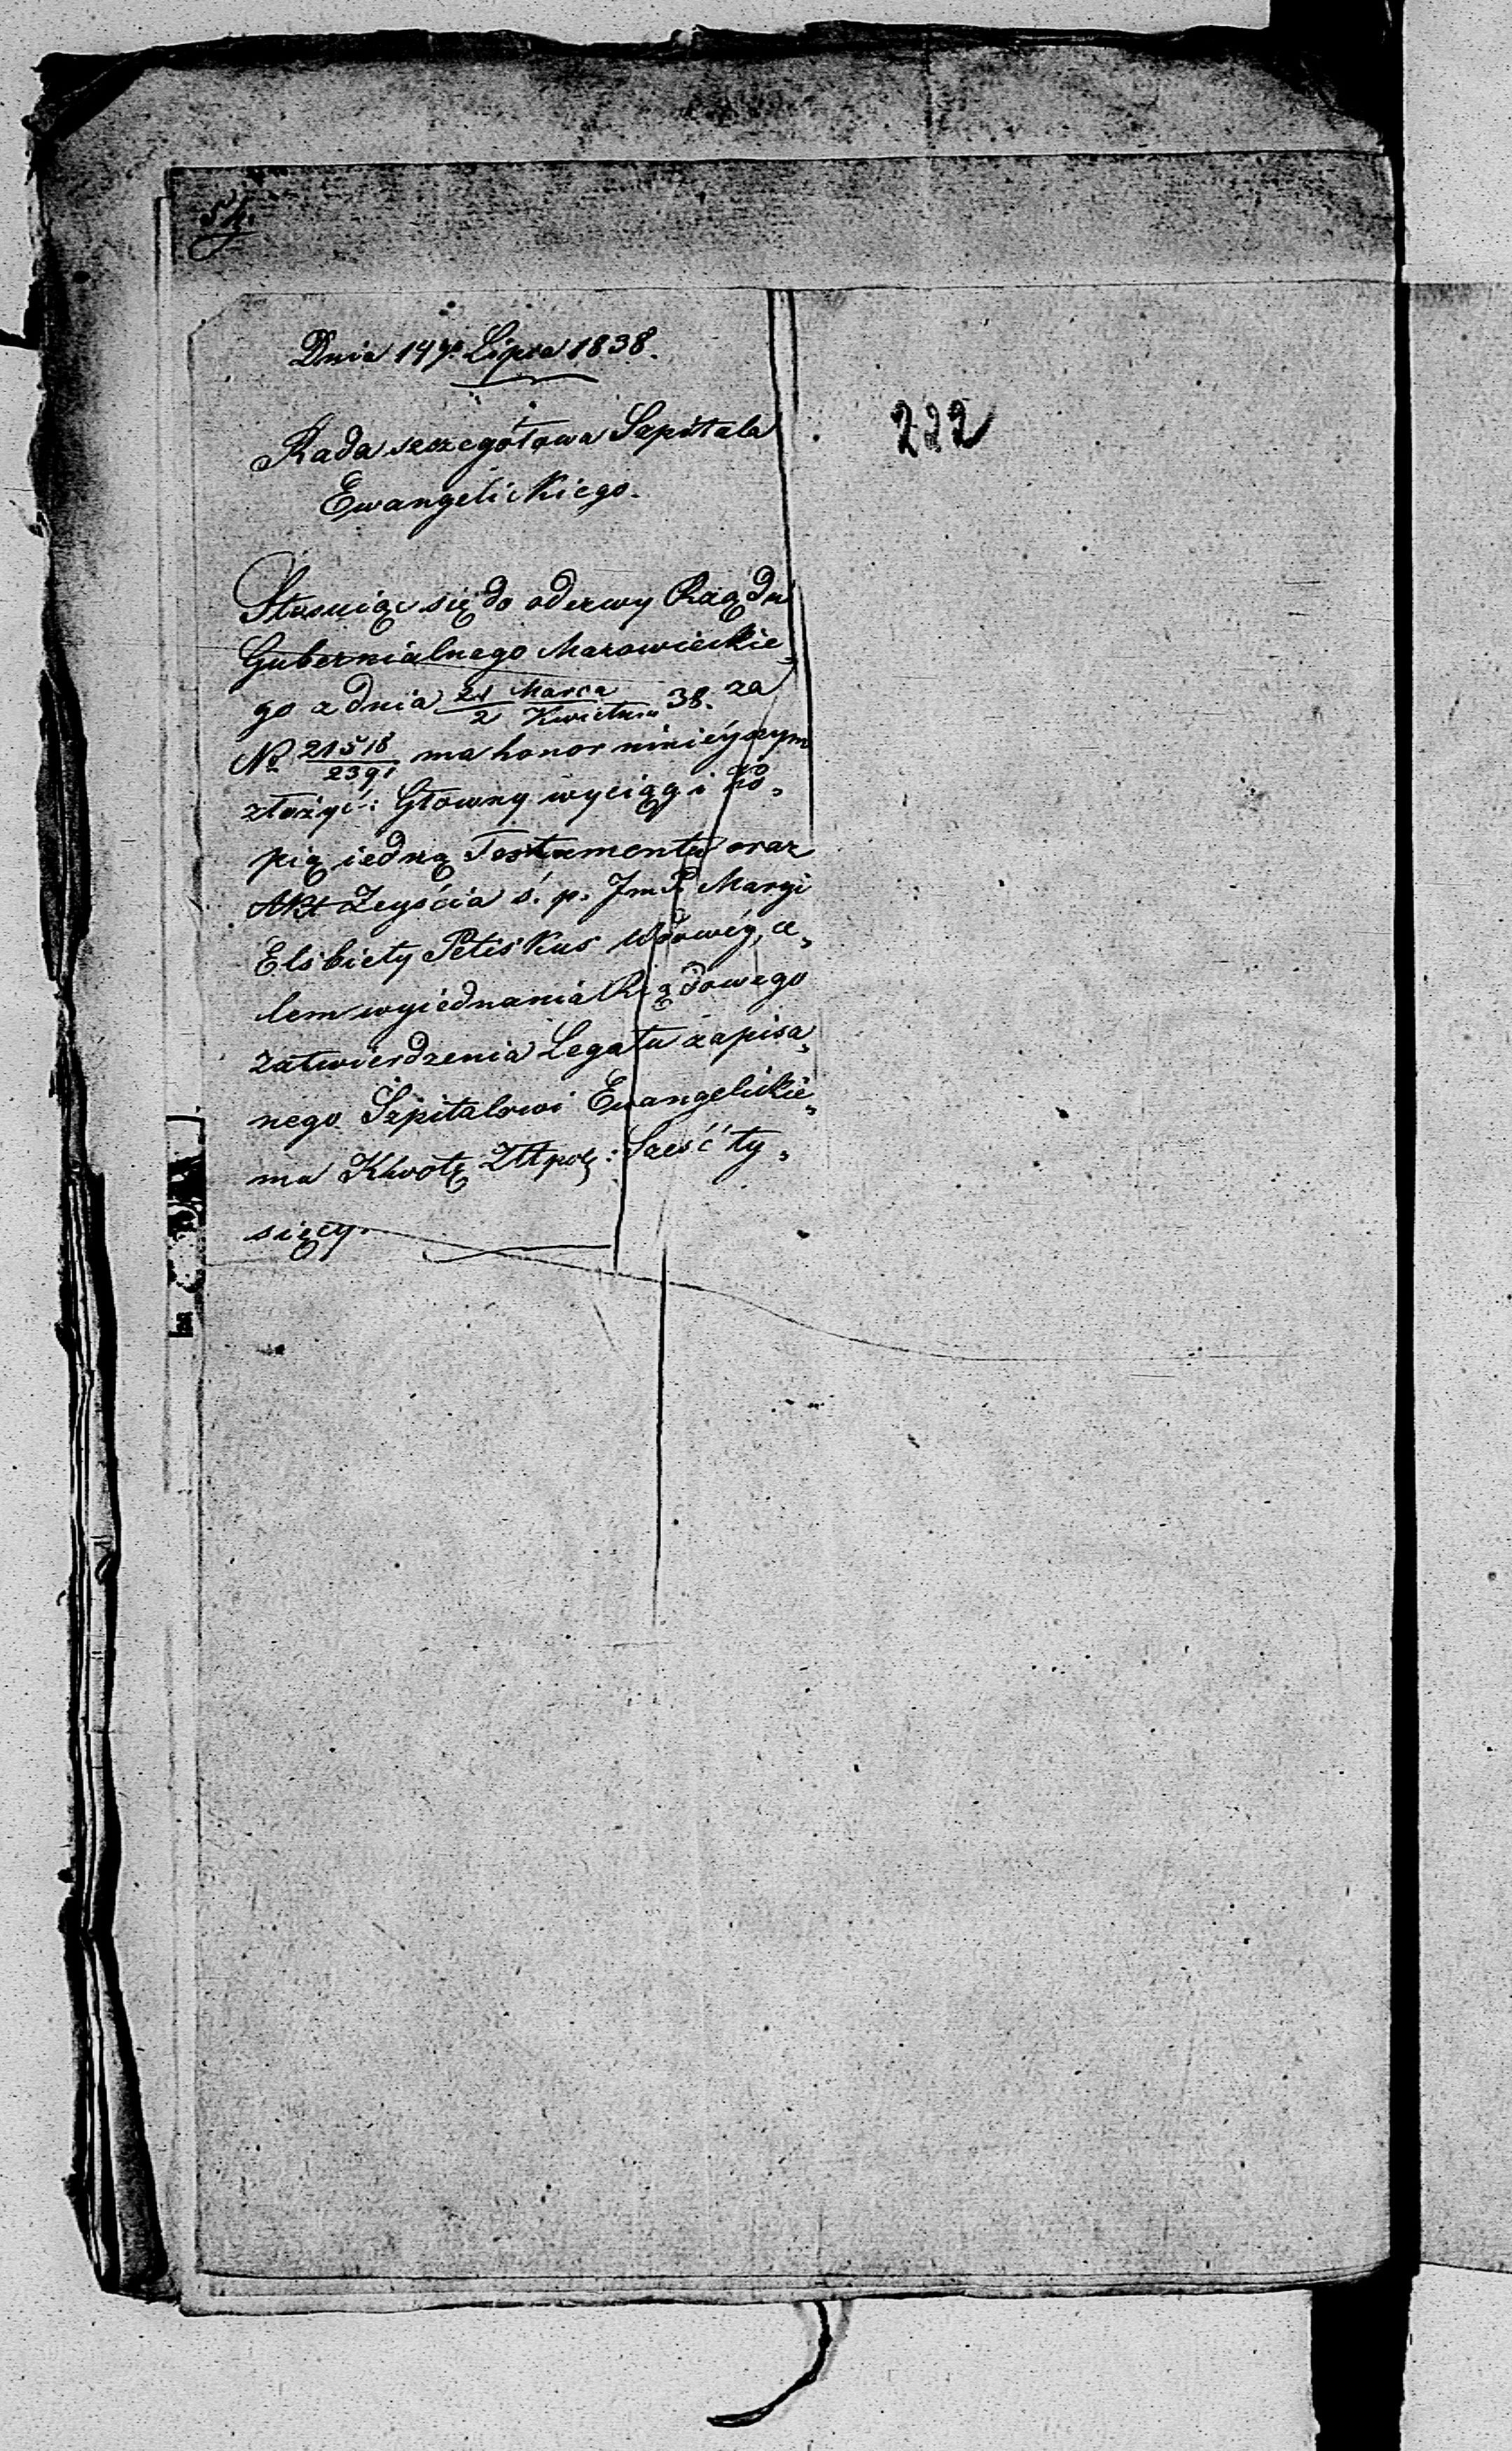 54.
Dnia 14go Lipca 1838.
222
Rada szczegółowa Szpitala
Ewangelickiego.
Stosuiąc się do odezwy Rządu
Gubernialnego Mazowieckie„
go z dnia 21 Marca / 2 Kwietnia 38. za
No 21518/2391 ma honor ninieyszym
złożyć: Głowny wyciąg i ko„
pią iedną Testamentu oraz
Akt Zeyścia ś. p. JmP. Maryi
Elsbiety Petiskus Wdowéy, ce„
lem wyiednania Rządowego
zatwierdzenia Legatu zapisa„
nego Szpitalowi Ewangelickie„
mu Kwotę Złtpol: Sześć ty„
sięcy.